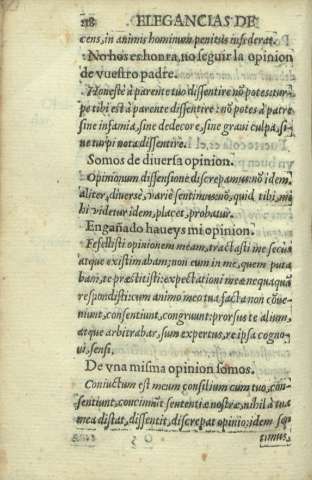 218 ELEGANCIAS DE
cens, in animis hominum penitùs insederat.
No hos es honra, no seguir la opinion
de vuestro padre.
Honestè à parente tuo dissentire nõ potes: tur
pe tibi est à parente dissentire: nõ potes à patre
sine infamia, sine dedecore, sine graui culpa, si-
ne turpi nota dissentire.
Somos de diuersa opinion.
Opinionum dissensione discrepamus: nõ idem,
aliter, diuersè, variè sentimus: nõ, quid tibi, mi-
hi videtur idem, placet, probatur.
Engañado haueys mi opinion.
Fefellisti opinionem meam, tractasti me secùs
atque existimabam; non eum in me, quem puta
bam, te præstitisti: expectationi meæ nequaquã
respondisti: cum animo meo tua facta non cõue-
niunt, consentiunt, congruunt: prorsus te alium,
atque arbitrabar, sum expertus, re ipsa cogno-
ui, sensi.
De vna misma opinion somos.
Coniuctum est meum consilium cum tuo, con-
sentiunt, concinnũt sententiæ nostræ, nihil à tua
mea distat, dissentit, discrepat opinio: idem sen
O 5 timus